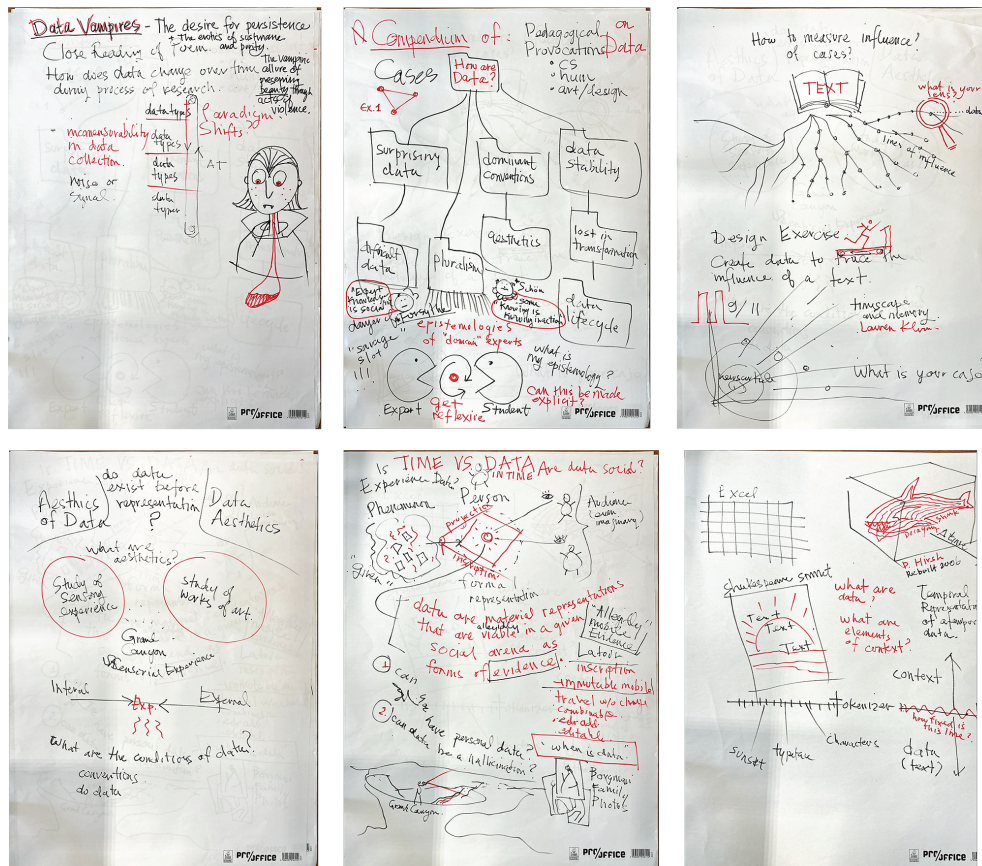 Data Vampires - The desire for persistence
+ The erotics of sustenance
and purity.
Close Reading of Form.
How does data change over time
during process of research.
The vampiric
allure of
preserving
beauty though
acts of
violence.
data types
data
types
data
types
data
types
Paradigm
Shifts
incomensurability
in data
collection.
noise or
signal.
PRO/OFFICE
A Compendium of:
Pedagogical
Provocations
on
Data
• CS
• hum
• art/design
Cases
Ex.1
How are
Data?
surprising
data
dominant
conventions
data
stability
different
data
pluralism
aesthetics
lost in
transformation
data
lifecycle
"Expert
knowledge
is social"
Forsythe
Schön
"some
knowing is
knowing inaction"
danger of
"savage
slot"
epistemologies
of "domain" experts
what is
my epistemology?
can this be made
explicit?
Expert
get
reflexive
Student
PRO/OFFICE
How to measure influence?
of cases?
TEXT
what is your
lens?
data
lines of influence
Design Exercise
Create data to trace the
influence of a text.
9/11
timescape
and memory
Lauren Klein
newsarticle
What is your case
PRO/OFFICE
do data
exist before
representation
?
Aesthics
of Data
Data
Aesthetics
what are
aesthetics?
Study of
sensing
experience
study of
works of art.
Grand
Canyon
Sensorial Experience
Internal
Exp.
External
What are the conditions of data?
conventions
do data
PRO/OFFICE
Is TIME VS. DATA
IN TIME
Are data social?
Experience Data?
Phenomenon
Person
projection
inscription
Audience
(even
imaginary)
"given"
formal
representation
data are material representation
that are viable in a given
allegedly
social arena as
forms of evidence.
"Allegedly"
mobile
Evidence
Latour
inscription
immutable mobile
travel w/o change
combinable
readable
editable
1 can
2. can
have personal data?
can data be a hallucination?
"when is data"
Grand Canyon
Borgman
Family
Photos
PRO/OFFICE
Excel
Decaying
shark
P. Hirsh
Rebuilt 2006
Shakespeare sonnet
Text
Text
Text
what are
data?
what are
elements
of context?
Temporal
of atemporal
data.
context
tokenizer
how fixed is
this line?
sunset
typeface
characters
data
(text)
PRO/OFFICE